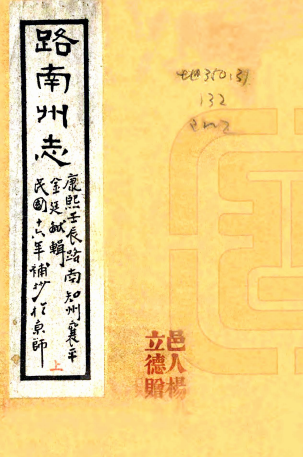 路南州志
康熙壬辰路南知州襄平
金廷献輯
民國十六年補抄於京師
上
地350:31
132
邑人楊
立德贈